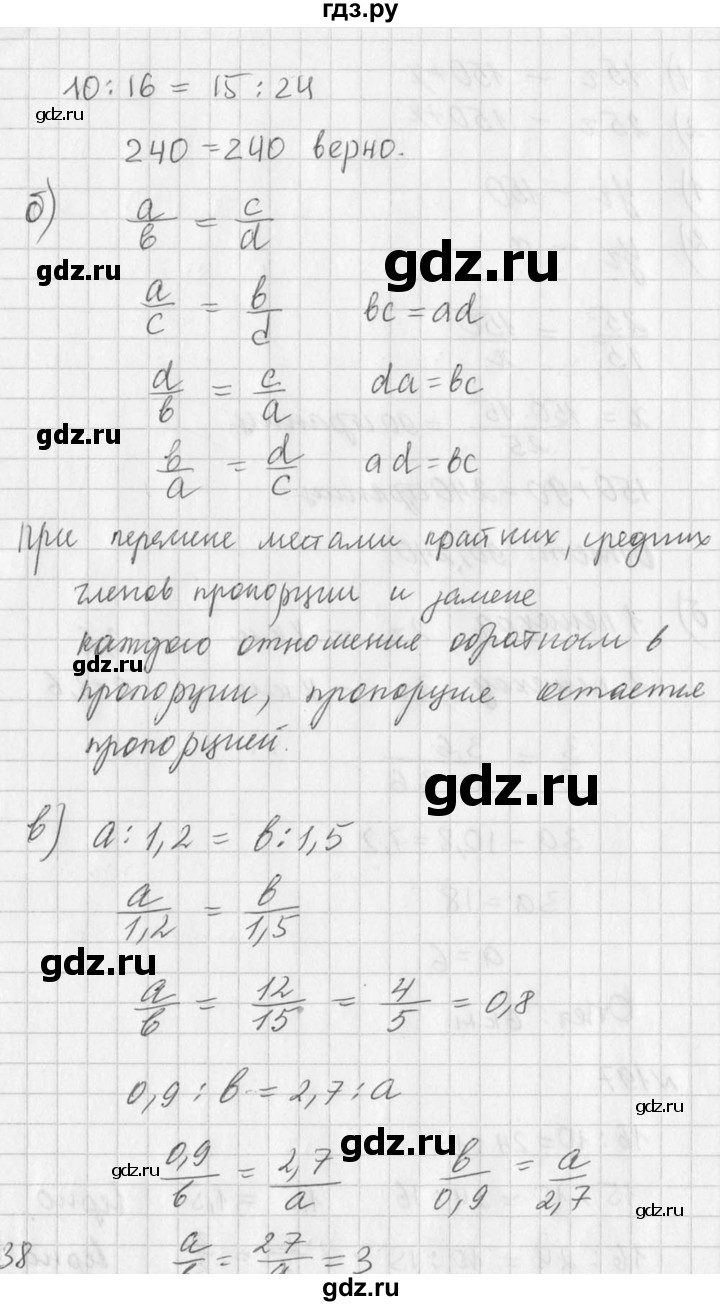 гдз.ру
10 : 16 = 15 : 24
gdz.ru
240 = 240 верно.
б) a/b = c/d
gdz.ru
gdz.ru
a/c = b/d bc = ad
d/b = c/a da = bc
gdz.ru
b/a = d/c ad = bc
При перемене местами крайних, средних
членов пропорции и замене
каждого отношения обратным в
gdz.ru
пропорции, пропорция остается
пропорцией.
gdz.ru
в) a : 1,2 = b : 1,5
a/1,2 = b/1,5
gdz.ru
a/b = 12/15 = 4/5 = 0,8
0,9 : b = 2,7 : a
gdz.ru
gdz.ru
0,9/b = 2,7/a b/0,9 = a/2,7
gdz.ru
gdz.ru
38 = 27/ = 3
gdz.ru